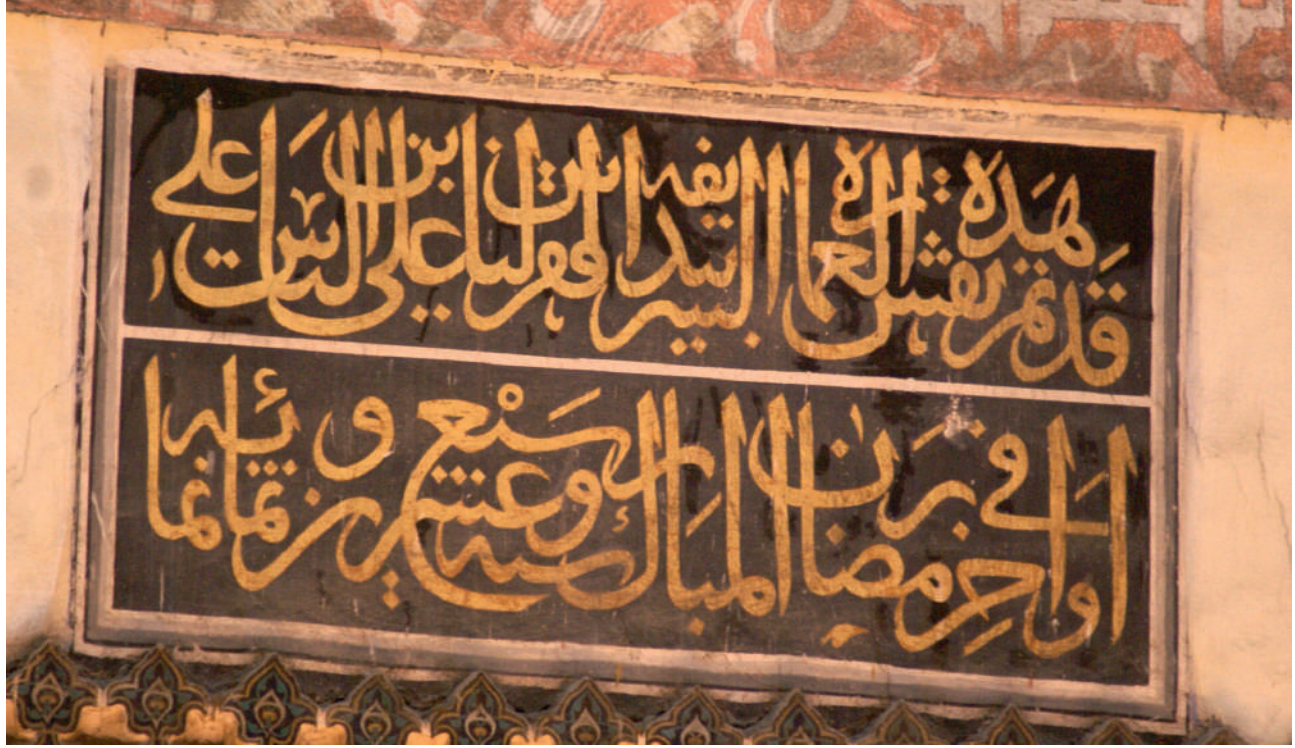 قد تم نقش هذه العمارة الشريفة بيد افقر الناس علي بن الياس علي
في اواخر رمضان المبارك سنة سبع وعشرين وثمانمائة